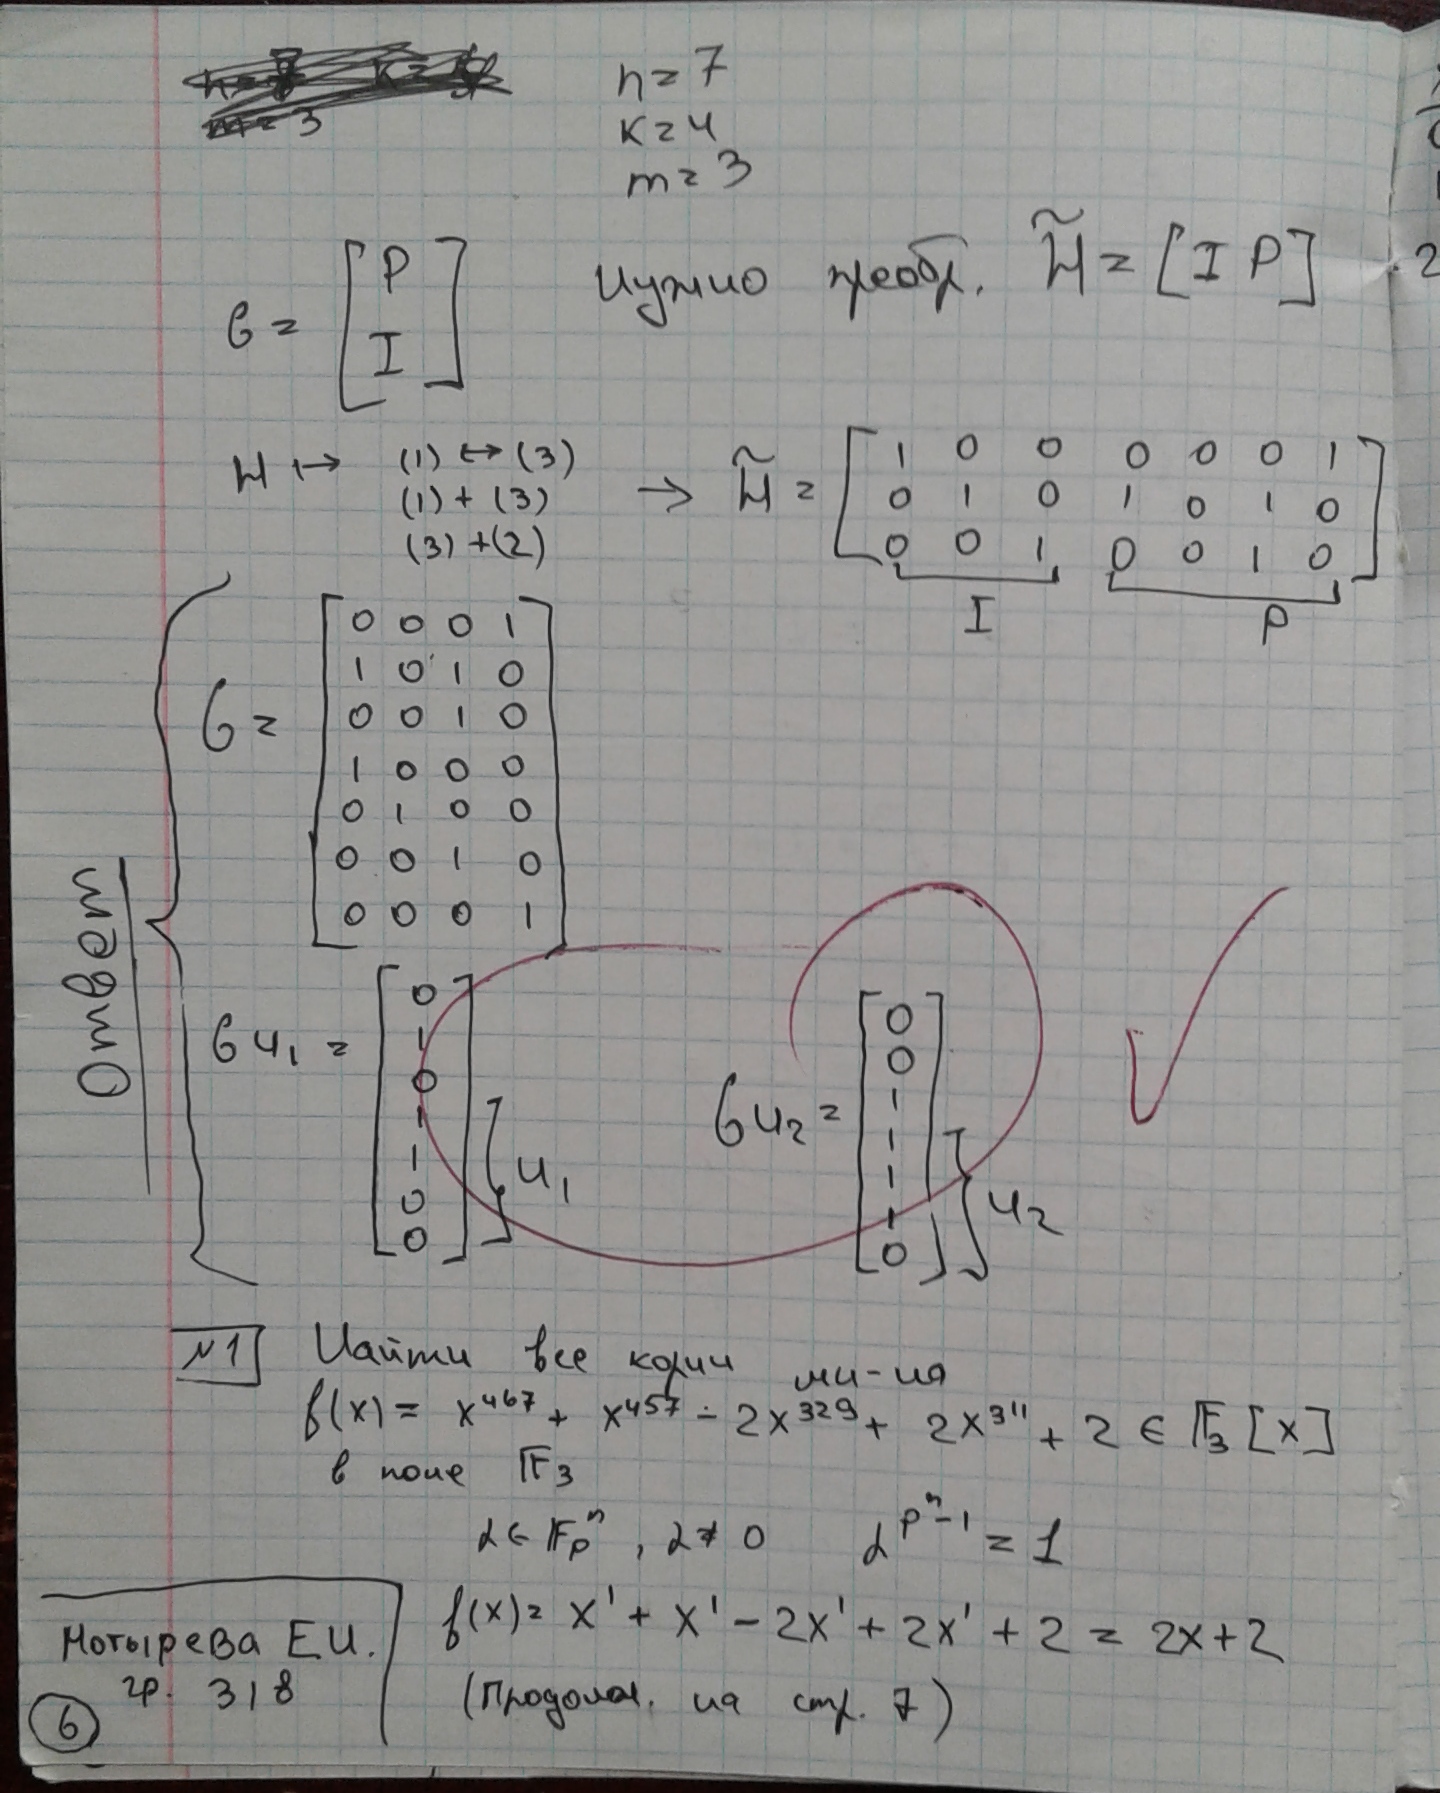 n=7
k=4
m=3
G = [P I]
Нужно преобр. H̃ = [I P]
H ↦ (1) ↔ (3)
(1) + (3)
(3) + (2)
→ H̃ =
1 0 0 0 0 0 1
0 1 0 1 0 1 0
0 0 1 0 0 1 0
I P
Ответ
G =
0 0 0 1
1 0 1 0
0 0 1 0
1 0 0 0
0 1 0 0
0 0 1 0
0 0 0 1
Gu₁ = [0 1 0 1 1 0 0] u₁
Gu₂ = [0 0 1 1 1 1 0] u₂
№1 Найти все корни мн-на
f(x) = x⁴⁶⁷ + x⁴⁵⁷ - 2x³²⁹ + 2x³¹¹ + 2 ∈ F₃[x]
в поле F₃
α ∈ Fₚⁿ, α ≠ 0 α^(pⁿ-1) = 1
f(x) = x¹ + x¹ - 2x¹ + 2x¹ + 2 = 2x+2
(Продолж. на стр. 7)
Нотырева Е.И.
гр. 318
6